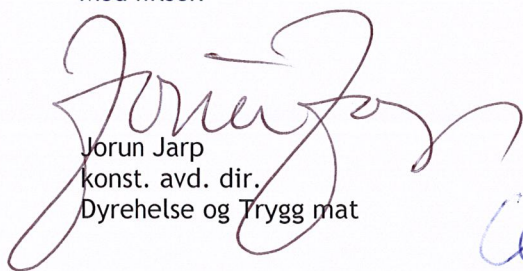 Jorun Jarp
konst. avd. dir.
Dyrehelse og Trygg mat